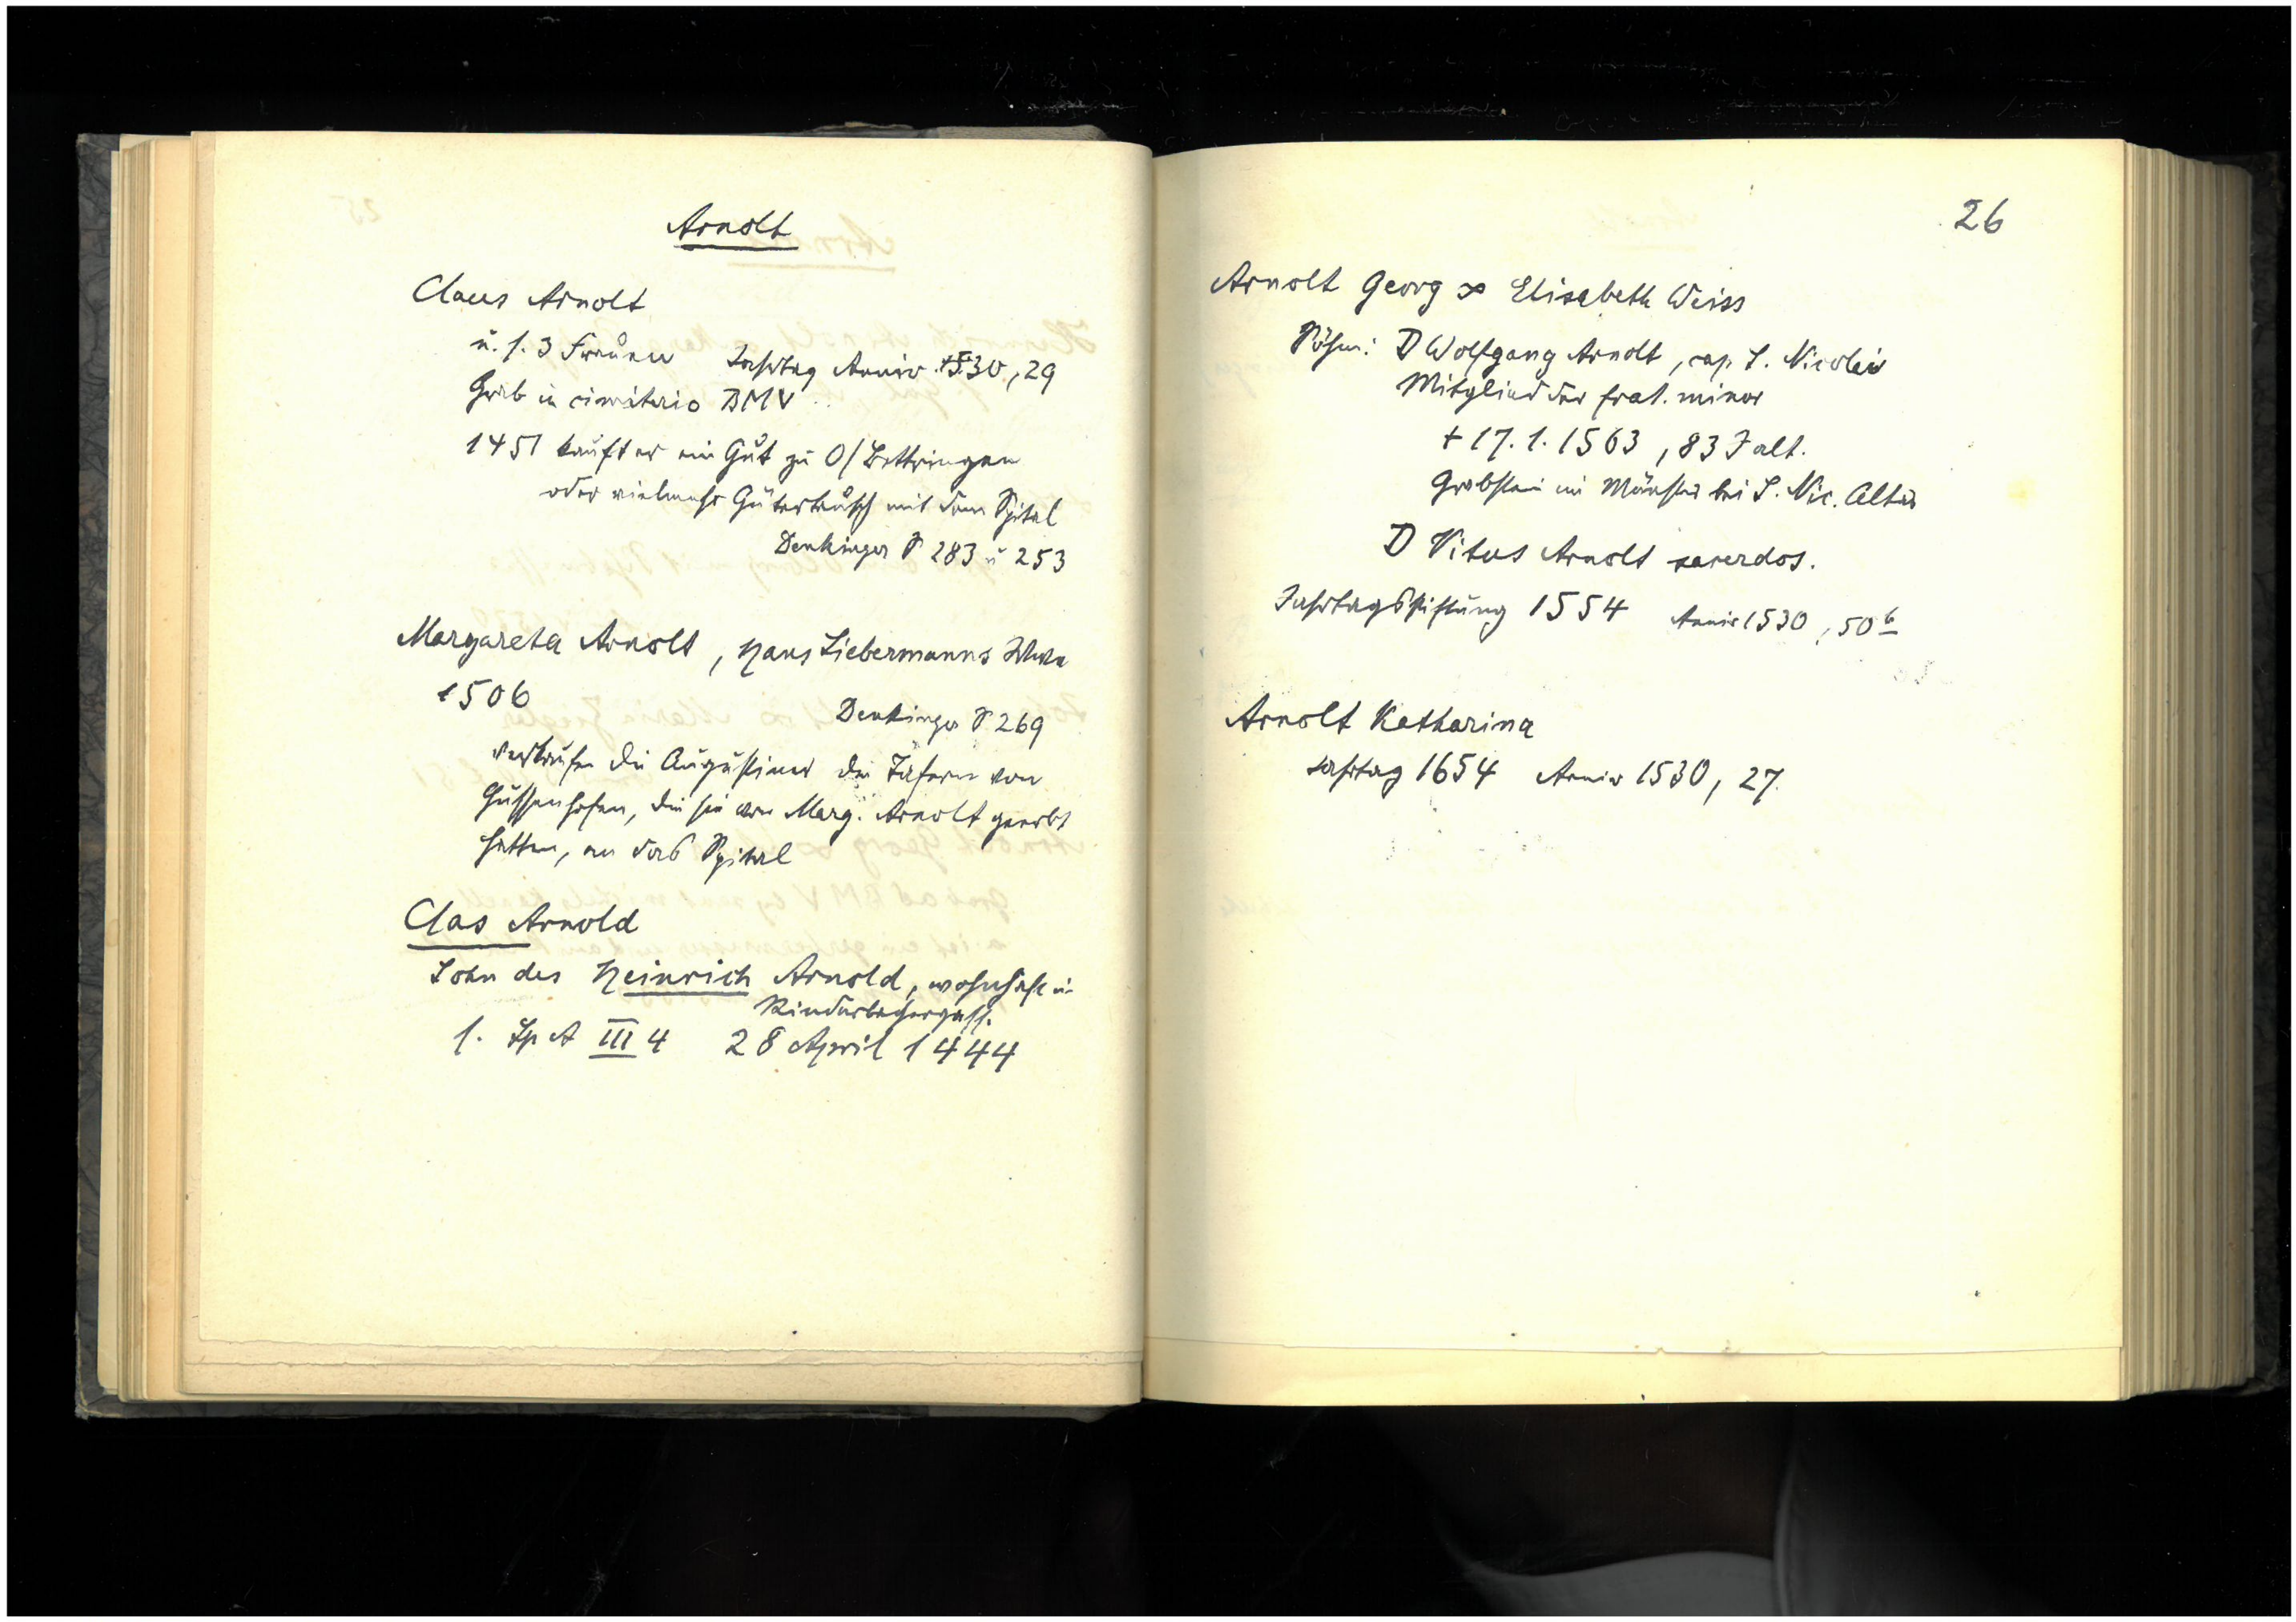 Arnolt
Claus Arnolt
u. s. 3 Frauen Jahrtag Anniv. 1530, 29
Grab in cimiterio BMV
1451 kauft er ein Gut zu O/Bettringen
oder vielmehr Gütertausch mit dem Spital
Denkinger S 283 u 253
Margareta Arnolt, Hans Liebermanns Wwe
1506
Denkinger S 269
verkaufen die Augustiner die Tafern von
Hussenhofen, die sie von Marg. Arnolt geerbt
hatten, an das Spital
Clas Arnold
Sohn des Heinrich Arnold, wohnhaft in
Rinderbachergass.
s. Sp A III 4 28 April 1444
26
Arnolt Georg ∞ Elisabeth Weiss
Söhne: D Wolfgang Arnolt, cap. S. Nicolai
Mitglied der frat. minor
+ 17. 1. 1563, 83 J alt.
Grabstein im Münster bei S. Nic. Altar
D Vitus Arnolt sacerdos.
Jahrtagsstiftung 1554 Anniv 1530, 50 b
Arnolt Katharina
Jahrtag 1654 Anniv 1530, 27.